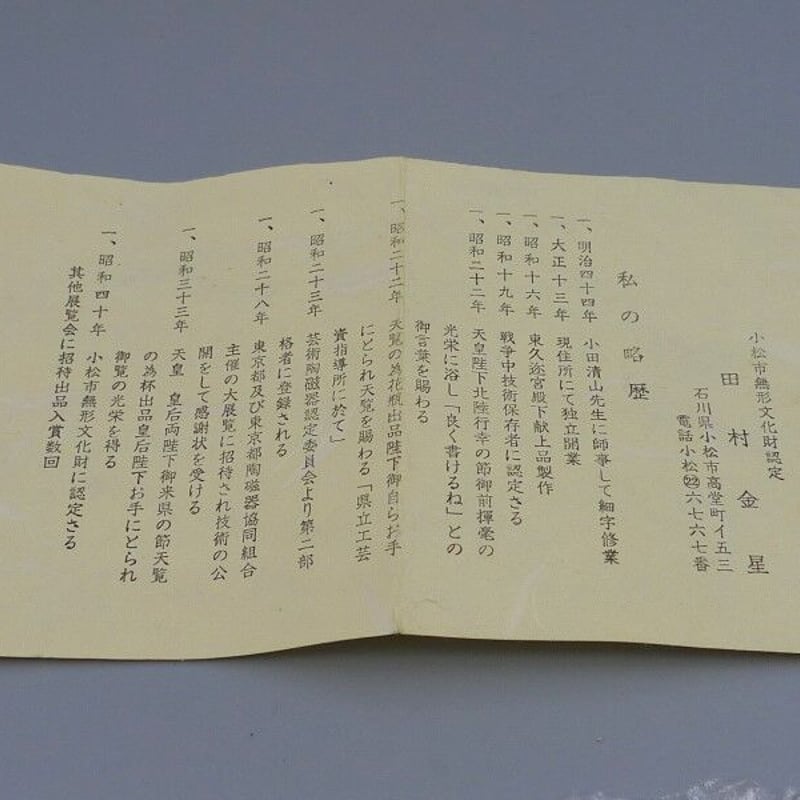 小松市無形文化財認定
田村金星
石川県小松市高堂町イ五三
電話小松㉒六七六七番
私の略歴
一、明治四十四年 小田清山先生に師事して細字修業
一、大正十三年 現住所にて独立開業
一、昭和十六年 東久迩宮殿下献上品製作
一、昭和十九年 戦争中技術保存者に認定さる
一、昭和二十二年 天皇陛下北陸行幸の節御前揮毫の
光栄に浴し「良く書けるね」との
御言葉を賜わる
一、昭和二十二年 天覧の為花瓶出品陛下御自らお手
にとられ天覧を賜わる「県立工芸
資指導所に於て」
一、昭和二十三年 芸術陶磁器認定委員会より第二部
格者に登録される
一、昭和二十八年 東京都及び東京都陶磁器協同組合
主催の大展覧に招待され技術の公
開をして感謝状を受ける
一、昭和三十三年 天皇 皇后両陛下御来県の節天覧
の為杯出品皇后陛下お手にとられ
御覧の光栄を得る
一、昭和四十年 小松市無形文化財に認定さる
其他展覧会に招待出品入賞数回